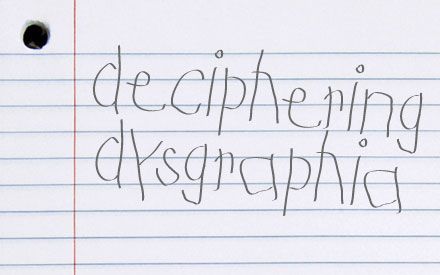 deciphering
dysgraphia